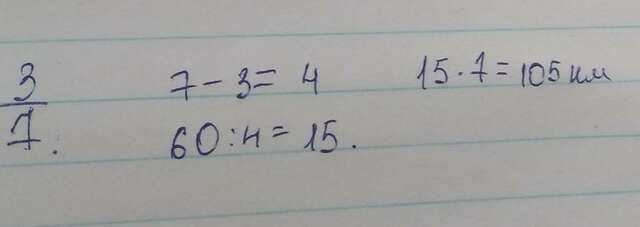 3/7. 7 - 3 = 4 15 · 7 = 105 км
60 : 4 = 15.